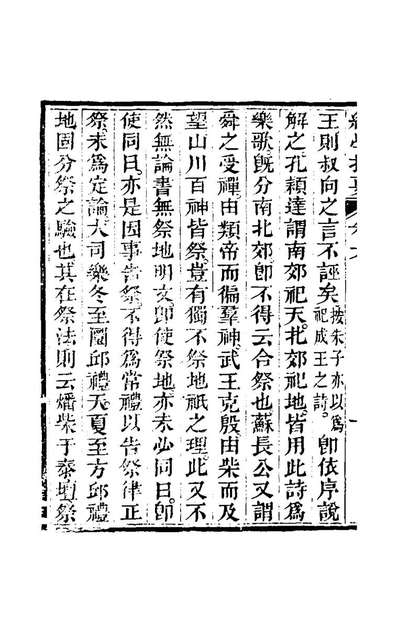 王則叔向之言不誣矣按朱子亦以爲祀成王之詩卽依序說
解之孔穎達謂南郊祀天北郊祀地皆用此詩爲
樂歌旣分南北郊卽不得云合祭也蘇長公又謂
舜之受禪由類帝而徧羣神武王克殷由柴而及
望山川百神皆祭豈有獨不祭地祇之理此又不
然無論書無祭地明文卽使祭地亦未必同日卽
使同日亦是因事告祭不得爲常禮以告祭律正
祭未爲定論大司樂冬至圜邱禮天夏至方邱禮
地固分祭之驗也其在祭法則云燔柴于泰壇祭